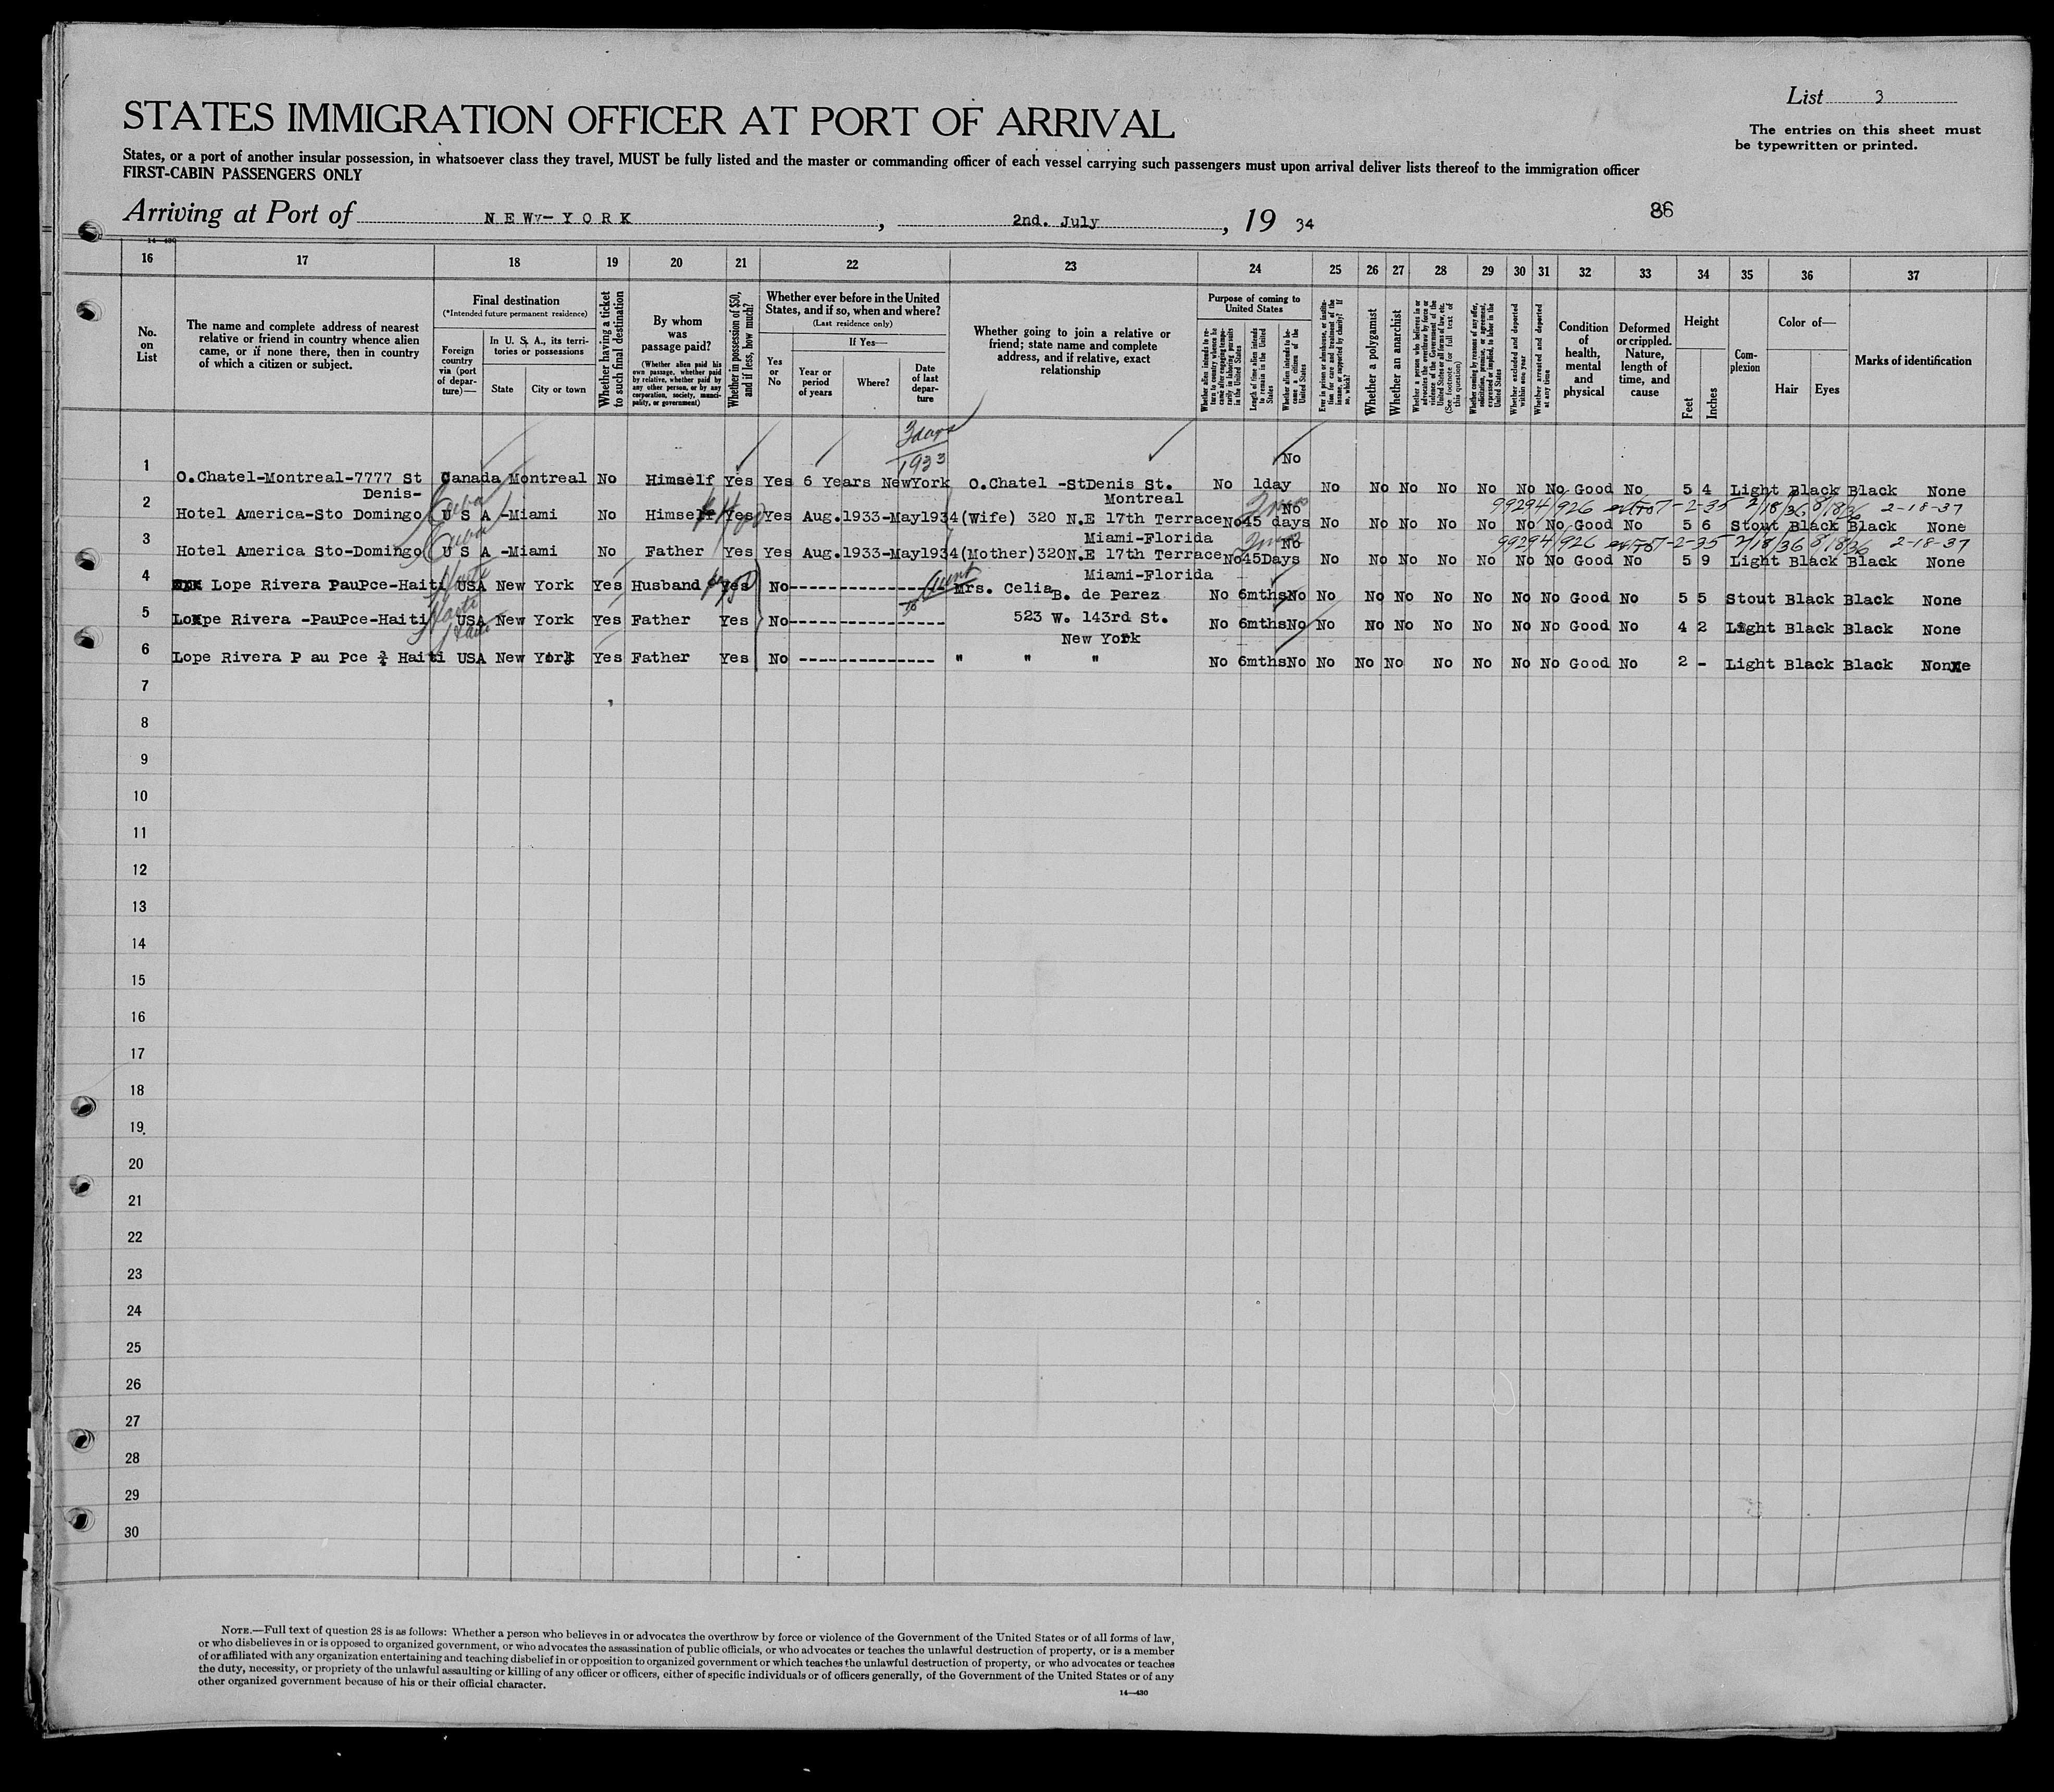 List 3
STATES IMMIGRATION OFFICER AT PORT OF ARRIVAL
The entries on this sheet must
be typewritten or printed.
States, or a port of another insular possession, in whatsoever class they travel, MUST be fully listed and the master or commanding officer of each vessel carrying such passengers must upon arrival deliver lists thereof to the immigration officer
FIRST-CABIN PASSENGERS ONLY
Arriving at Port of NEW-YORK, 2nd. July, 19 34
86
14-430
16 17 18 19 20 21 22 23 24 25 26 27 28 29 30 31 32 33 34 35 36 37
No.
on
List
The name and complete address of nearest
relative or friend in country whence alien
came, or if none there, then in country
of which a citizen or subject.
Final destination
(*Intended future permanent residence)
Foreign
country
via (port
of depar-
ture)—
In U. S. A., its terri-
tories or possessions
State City or town
Whether having a ticket
to such final destination
By whom
was
passage paid?
(Whether alien paid his
own passage, whether paid
by relative, whether paid by
any other person, or by any
corporation, society, munici-
pality, or government)
Whether in possession of $50,
and if less, how much?
Whether ever before in the United
States, and if so, when and where?
(Last residence only)
If Yes—
Yes
or
No
Year or
period
of years
Where?
Date
of last
depar-
ture
Whether going to join a relative or
friend; state name and complete
address, and if relative, exact
relationship
Purpose of coming to
United States
Whether alien intends to re-
turn to country whence he
came after engaging tempo-
rarily in laboring pursuits
in the United States
Length of time alien intends
to remain in the United
States
Whether alien intends to be-
come a citizen of the
United States
Ever in prison or almshouse, or institu-
tion for care and treatment of the
insane, or supported by charity? If
so, which?
Whether a polygamist
Whether an anarchist
Whether a person who believes in or
advocates the overthrow by force or
violence of the Government of the
United States or all forms of law, etc.
(See footnote for full text of
this question)
Whether coming by reason of any offer,
solicitation, promise, or agreement,
expressed or implied, to labor in the
United States
Whether excluded and deported
within one year
Whether arrested and deported
at any time
Condition
of
health,
mental
and
physical
Deformed
or crippled.
Nature,
length of
time, and
cause
Height
Feet Inches
Com-
plexion
Color of—
Hair Eyes
Marks of identification
3 days
1933
1 O.Chatel-Montreal-7777 St Canada Montreal No Himself Yes Yes 6 Years NewYork O.Chatel -StDenis St. No 1day No No No No No No No No Good No 5 4 Light Black Black None
Denis- Montreal
Cuba 2 mos 99294/926 ext to 7-2-35 2/18/36 8/18/36 2-18-37
2 Hotel America-Sto Domingo U S A -Miami No Himself Yes Yes Aug.1933-May1934 (Wife) 320 N.E 17th Terrace No 45 days No No No No No No No No Good No 5 6 Stout Black Black None
Miami-Florida
Cuba 2 mos 99294/926 ext to 7-2-35 2/18/36 8/18/36 2-18-37
3 Hotel America Sto-Domingo U S A -Miami No Father Yes Yes Aug.1933-May1934 (Mother)320N.E 17th Terrace No 45Days No No No No No No No No Good No 5 9 Light Black Black None
Miami-Florida
Haiti Aunt
4 Lope Rivera PauPce-Haiti USA New York Yes Husband Yes No Mrs. Celia B. de Perez No 6mths No No No No No No No No Good No 5 5 Stout Black Black None
Haiti
5 Lope Rivera -PauPce-Haiti USA New York Yes Father Yes No 523 W. 143rd St. No 6mths No No No No No No No No Good No 4 2 Light Black Black None
Haiti New York
6 Lope Rivera P au Pce Haiti USA New York Yes Father Yes No " " " No 6mths No No No No No No No No Good No 2 - Light Black Black None
7
8
9
10
11
12
13
14
15
16
17
18
19
20
21
22
23
24
25
26
27
28
29
30
NOTE.—Full text of question 28 is as follows: Whether a person who believes in or advocates the overthrow by force or violence of the Government of the United States or of all forms of law,
or who disbelieves in or is opposed to organized government, or who advocates the assassination of public officials, or who advocates or teaches the unlawful destruction of property, or is a member
of or affiliated with any organization entertaining and teaching disbelief in or opposition to organized government or which teaches the unlawful destruction of property, or who advocates or teaches
the duty, necessity, or propriety of the unlawful assaulting or killing of any officer or officers, either of specific individuals or of officers generally, of the Government of the United States or of any
other organized government because of his or their official character.
14—430